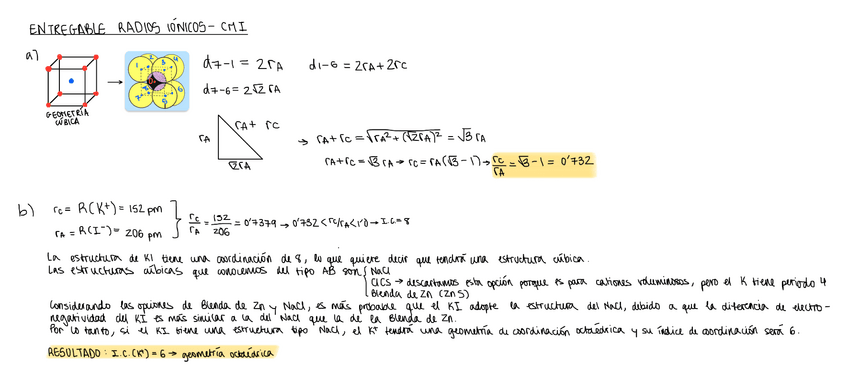 ENTREGABLE RADIOS IÓNICOS - CMI
a)
GEOMETRÍA CÚBICA
d7-1 = 2rA d1-6 = 2rA + 2rC
d7-6 = 2√2 rA
rA rA + rC √2rA
→ rA + rC = √rA² + (√2rA)² = √3 rA
rA + rC = √3 rA → rC = rA(√3 - 1) → rC/rA = √3 - 1 = 0'732
b)
rC = R(K⁺) = 152 pm
rA = R(I⁻) = 206 pm
rC/rA = 152/206 = 0'7379 → 0'732 < rC/rA < 1'0 → I.C. = 8
La estructura de KI tiene una coordinación de 8, lo que quiere decir que tendrá una estructura cúbica.
Las estructuras cúbicas que conocemos del tipo AB son NaCl
ClCs → descartamos esta opción porque es para cationes voluminosos, pero el K tiene periodo 4
Blenda de Zn (ZnS)
Considerando las opciones de Blenda de Zn y NaCl, es más probable que el KI adopte la estructura del NaCl, debido a que la diferencia de electro-
negatividad del KI es más similar a la del NaCl que la de la Blenda de Zn.
Por lo tanto, si el KI tiene una estructura tipo NaCl, el K⁺ tendrá una geometría de coordinación octaédrica y su índice de coordinación será 6.
RESULTADO: I.C.(K⁺) = 6 → geometría octaédrica